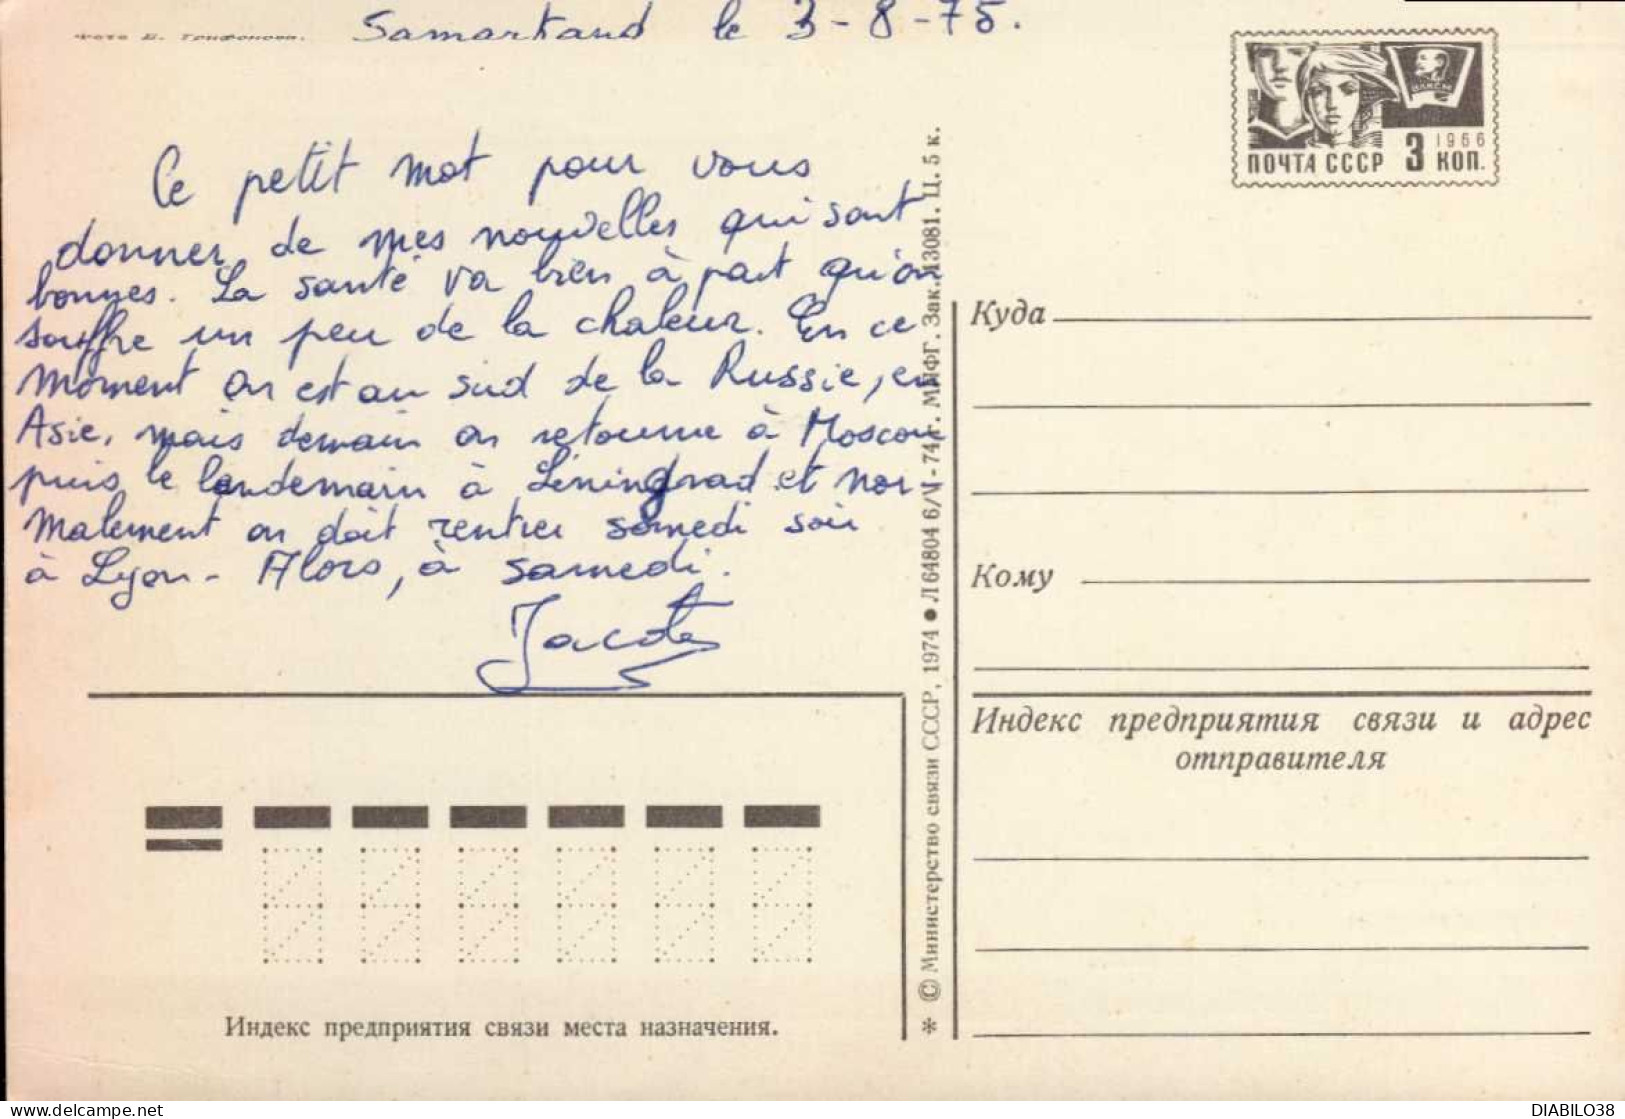 Фото В. Трифонова.
Samarkand le 3-8-75.
Ce petit mot pour vous
donner de mes nouvelles qui sont
bonnes. La santé va bien à part qu'on
souffre un peu de la chaleur. En ce
moment on est au sud de la Russie, en
Asie, mais demain on retourne à Moscou
puis le lendemain à Léningrad et nor-
malement on doit rentrer samedi soir
à Lyon - Alors, à samedi.
ВЛКСМ
1966
ПОЧТА СССР 3 КОП.
Куда
Кому
Индекс предприятия связи и адрес
отправителя
* © Министерство связи СССР, 1974 ● Л 64804 6/V-74 г. МПФГ. Зак. 13081. Ц. 5 к.
Индекс предприятия связи места назначения.
www.delcampe.net
DIABILO38